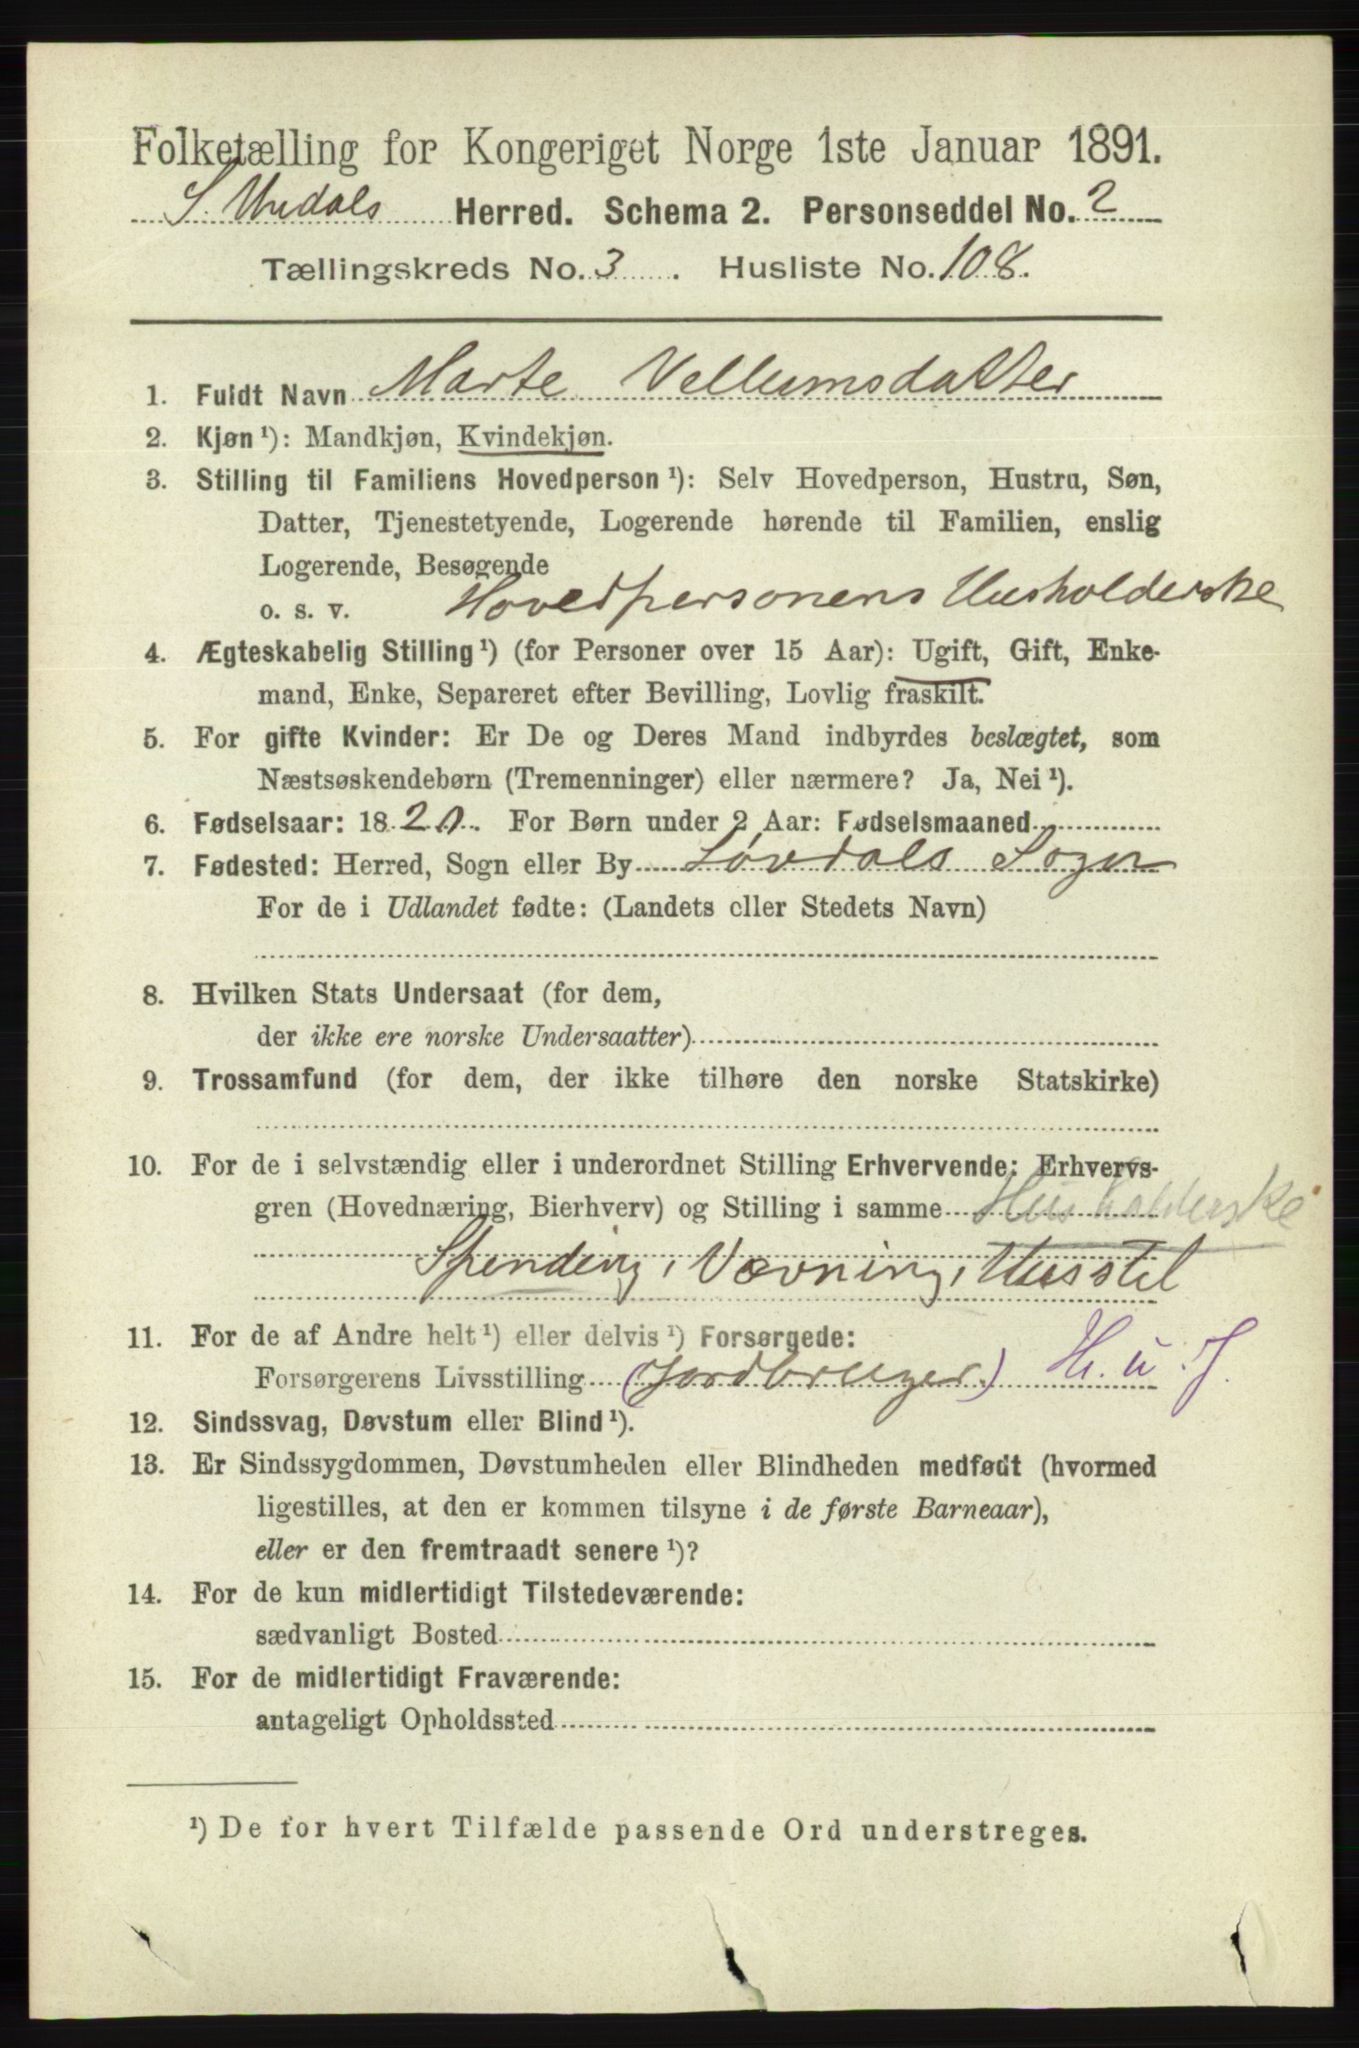 Folketælling for Kongeriget Norge 1ste Januar 1891.
S. Undals Herred. Schema 2. Personseddel No. 2
Tællingskreds No. 3. Husliste No. 108.
1. Fuldt Navn Marte Vellumsdatter
2. Kjøn ¹): Mandkjøn, Kvindekjøn.
3. Stilling til Familiens Hovedperson ¹): Selv Hovedperson, Hustru, Søn,
Datter, Tjenestetyende, Logerende hørende til Familien, enslig
Logerende, Besøgende
o. s. v. Hovedpersonens Husholderske
4. Ægteskabelig Stilling ¹) (for Personer over 15 Aar): Ugift, Gift, Enke-
mand, Enke, Separeret efter Bevilling, Lovlig fraskilt.
5. For gifte Kvinder: Er De og Deres Mand indbyrdes beslægtet, som
Næstsøskendebørn (Tremenninger) eller nærmere? Ja, Nei ¹).
6. Fødselsaar: 18 20. For Børn under 2 Aar: Fødselsmaaned
7. Fødested: Herred, Sogn eller By Løvdals Sogn
For de i Udlandet fødte: (Landets eller Stedets Navn)
8. Hvilken Stats Undersaat (for dem,
der ikke ere norske Undersaatter)
9. Trossamfund (for dem, der ikke tilhøre den norske Statskirke)
10. For de i selvstændig eller i underordnet Stilling Erhvervende: Erhvervs-
gren (Hovednæring, Bierhverv) og Stilling i samme Husholderske
Spinding, Vævning, Husstel
11. For de af Andre helt ¹) eller delvis ¹) Forsørgede:
Forsørgerens Livsstilling (Jordbruger) H. u. J.
12. Sindssvag, Døvstum eller Blind ¹).
13. Er Sindssygdommen, Døvstumheden eller Blindheden medfødt (hvormed
ligestilles, at den er kommen tilsyne i de første Barneaar),
eller er den fremtraadt senere ¹)?
14. For de kun midlertidigt Tilstedeværende:
sædvanligt Bosted
15. For de midlertidigt Fraværende:
antageligt Opholdssted
¹) De for hvert Tilfælde passende Ord understreges.